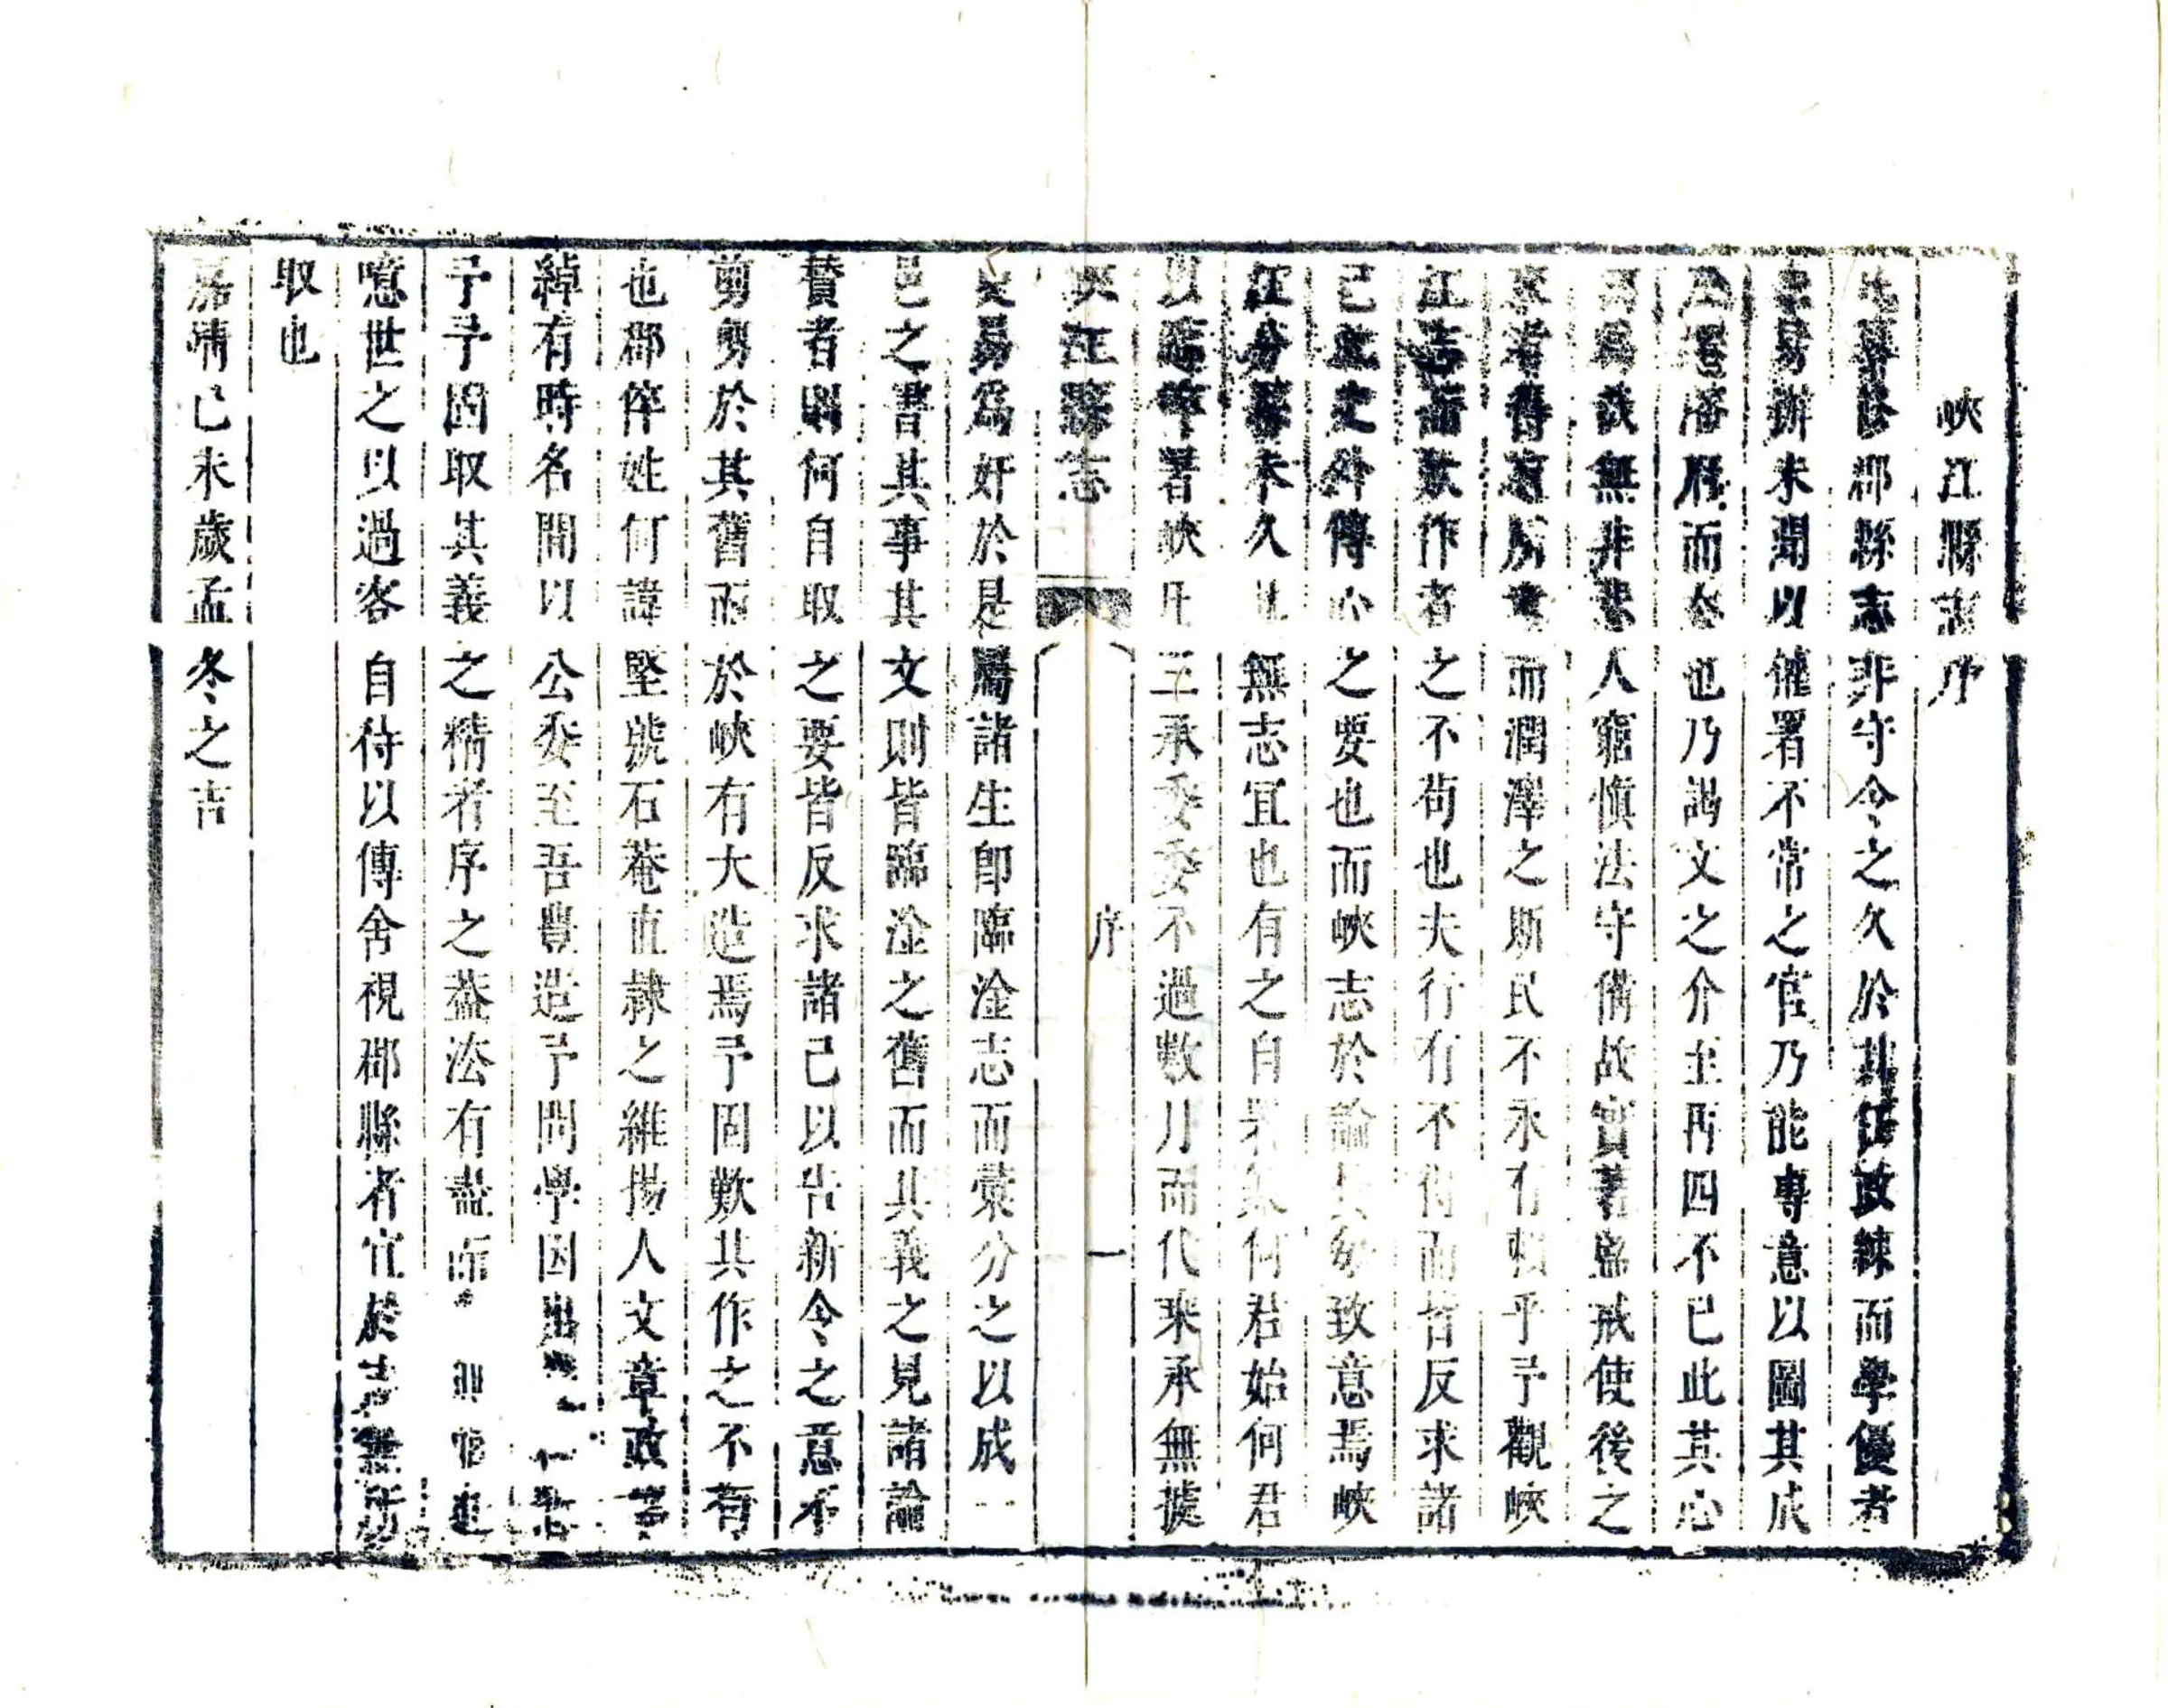 峽江縣志序
郡縣志非守令之久於其任政練而學優者
未易辦未聞以催署不常之官乃能專意以圖其成
而去也乃謁文之介至再四不已此其心
無非人竄慎法守備故實著鑒戒使後之
來者得有所考而潤澤之斯民不永有賴乎予觀峽
江志諸歎作者之不茍也夫行有不得而皆反求諸
己文外傳心之要也而峽志於論贊每致意焉峽
江分縣未久其無志宜也有之自署縣何君始何君
以郡倅署峽正承委委不過數月而代來承無據
峽江縣志
序
一
更易爲奸於是屬諸生卽臨淦志而彙分之以成一
邑之書其事其文則皆臨淦之舊而其義之見諸論
贊者則何自取之要皆反求諸己以告新令之意不
剪剪於其舊而於峽有大造焉予固歎其作之不有
也郡倅姓何諱堅號石菴直隸之維揚人文章政事
綽有時名間以公委至吾豐造予問學因出
予予固取其義之精者序之葢法有盡而
噫世之以過客自待以傳舍視郡縣者宜於志無所
取也
嘉靖己未歲孟冬之吉